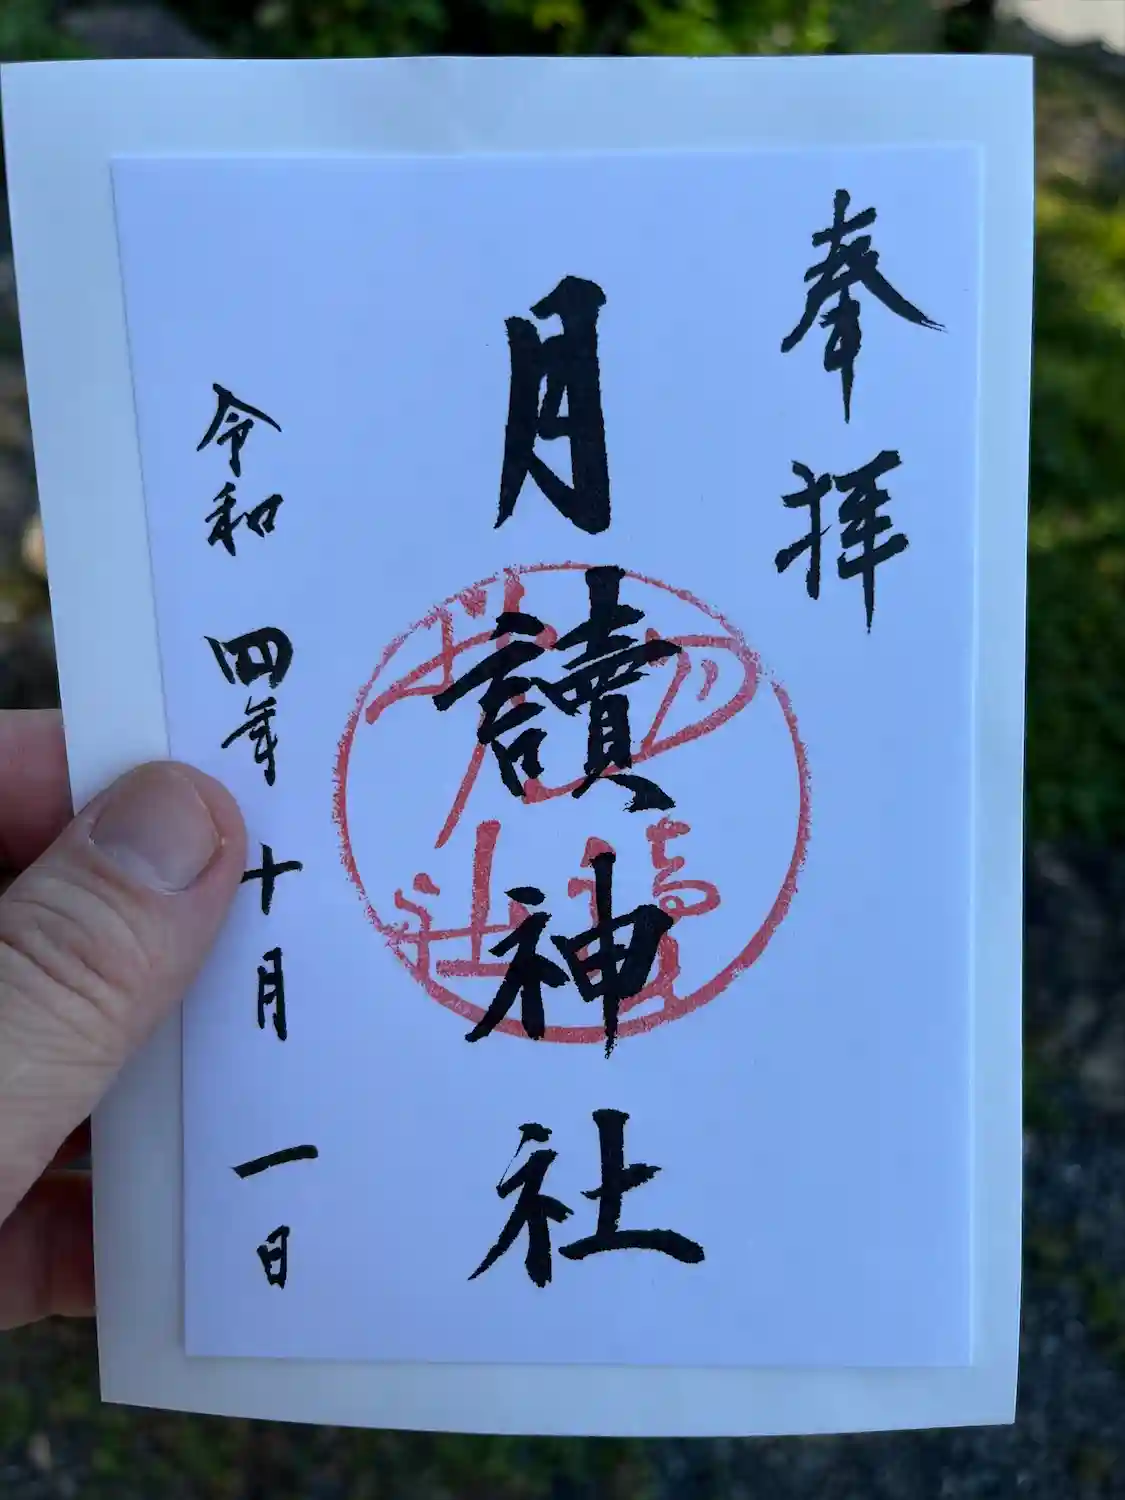 奉拝
月讀神社
令和四年十月一日